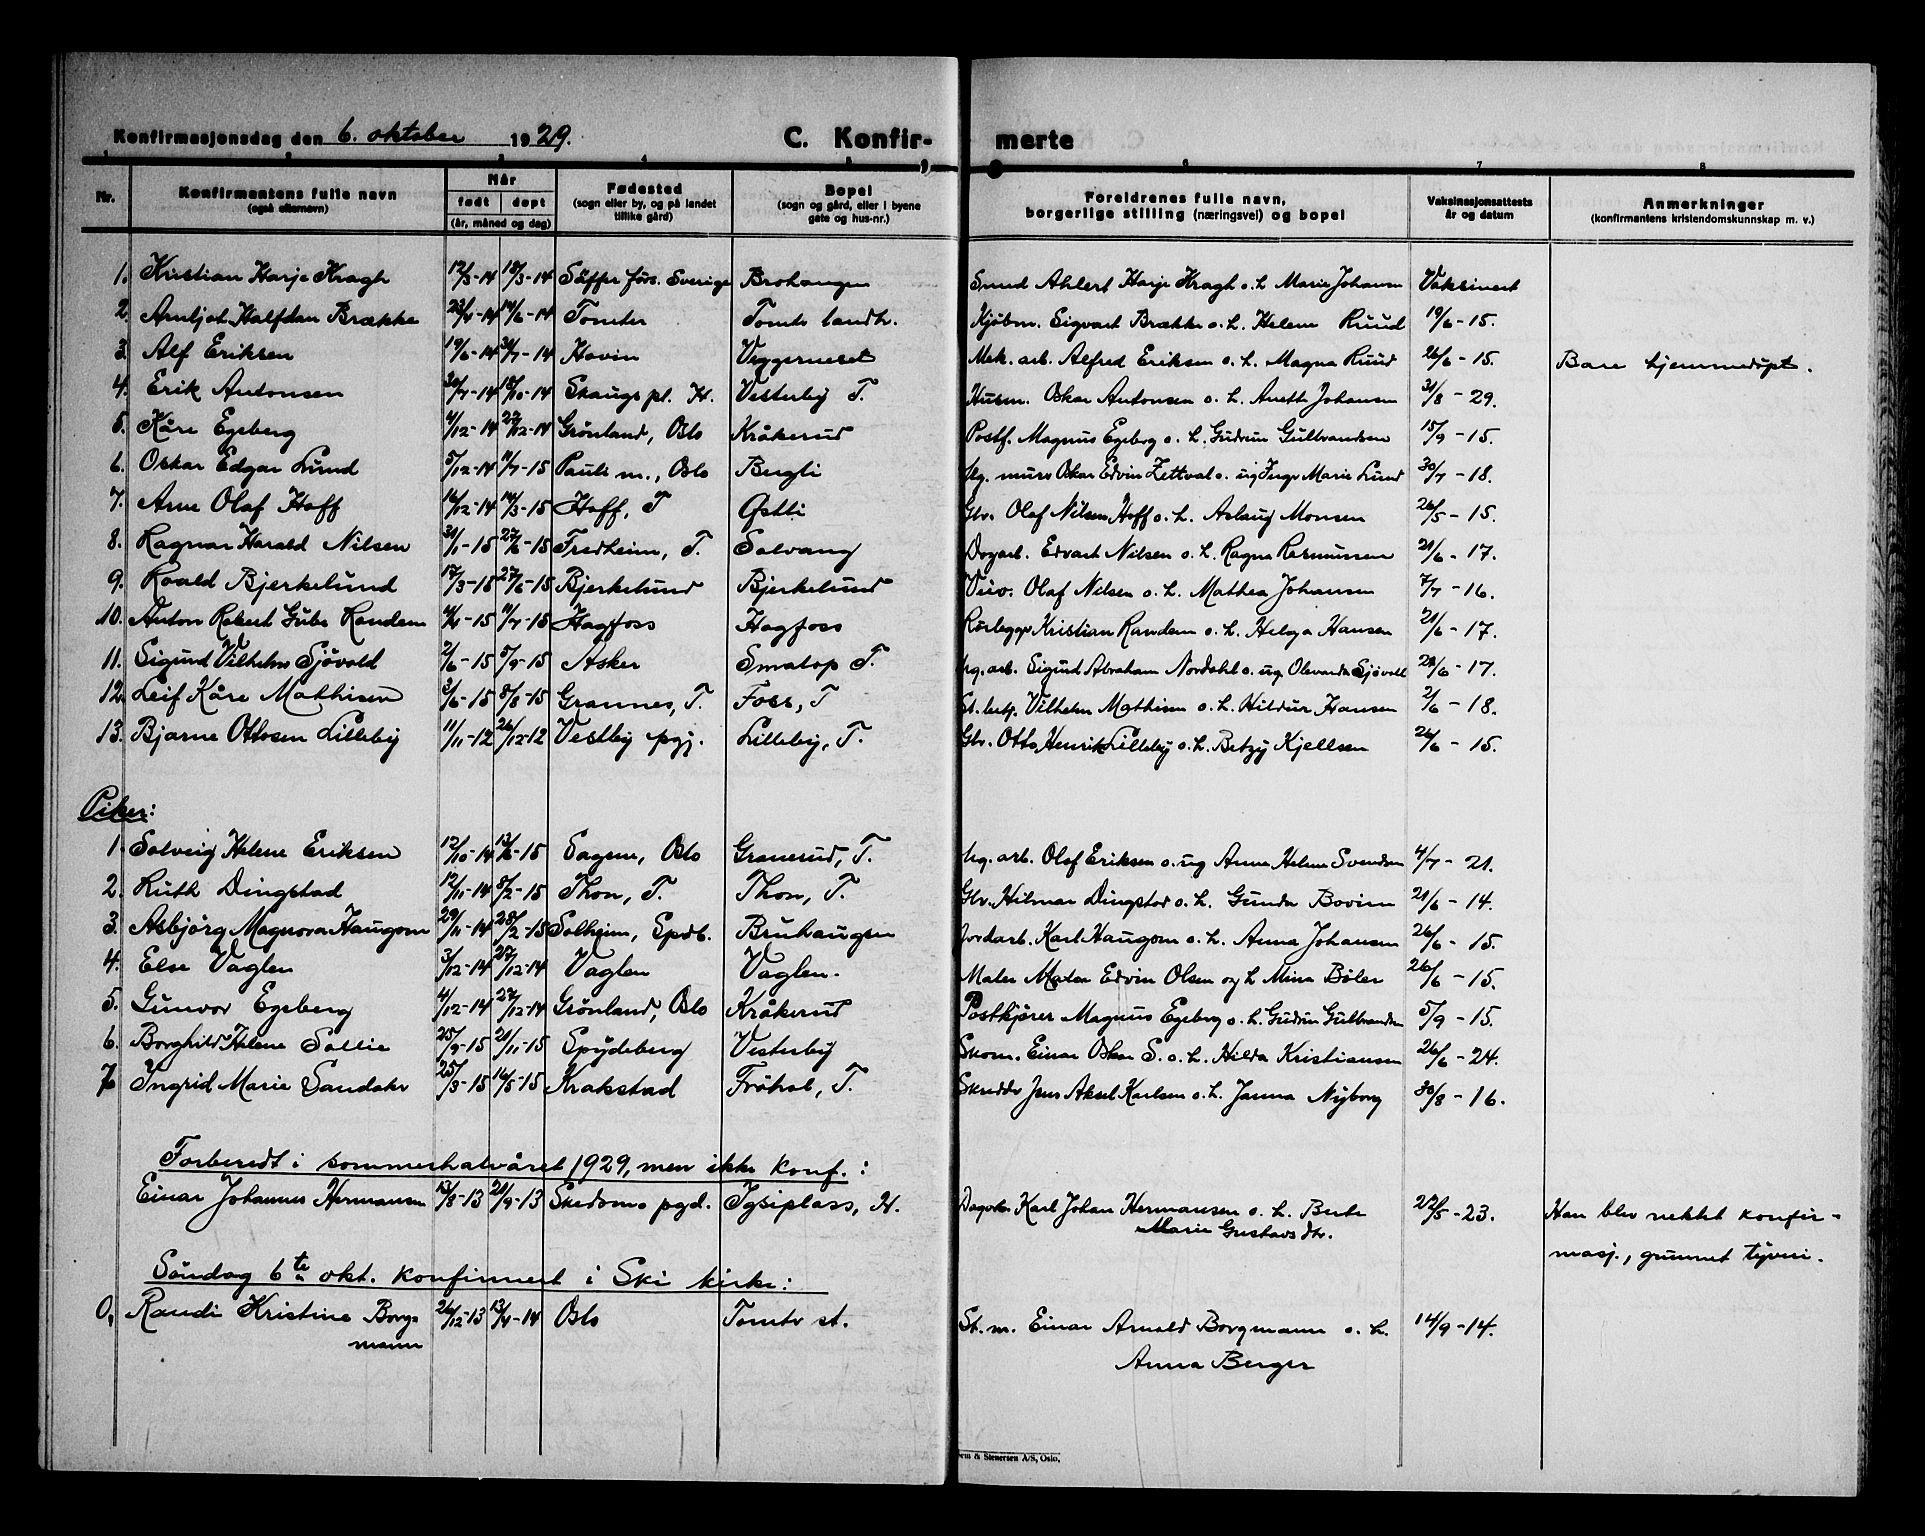 Konfirmasjonsdag den 6. oktober 1929. C. Konfir- merte
1 2 3 4 5 6 7 8
Nr. Konfirmantens fulle navn (også efternavn) Når født døpt (år, måned og dag) Fødested (sogn eller by, og på landet tillike gård) Bopel (sogn og gård, eller i byene gate og hus-nr.) Foreldrenes fulle navn, borgerlige stilling (næringsvei) og bopel Vaksinasjonsattests år og datum Anmerkninger (konfirmantens kristendomskunnskap m. v.)
1. Kristian Harje Kragh 12/3-14 18/3-14 Säffer förs. Sverige Brohaugen Smed Ahlert Harje Kragh o. h. Marie Johansen Vaksinert
2. Arnljot Halfdan Brække 23/4-14 14/6-14 Tomter Tomter landh. Kjøbm. Sigvart Brække o. h. Helene Ruud 19/6-15.
3. Alf Eriksen 19/6-14 Hovin Veggerneset Mek. arb. Alfred Eriksen o. h. Magna Ruud 26/6-15. Bare hjemmedøpt.
4. Erik Antonsen 30/7-14 18/10-14 Skaugs pl. H. Vesterby T. Husm. Oskar Antonsen o. h. Anette Johansen 31/8-29.
5. Kåre Egeberg 4/12-14 27/12-14 Grønland, Oslo Kråkerud Postf. Magnus Egeberg o. h. Gudrun Gulbrandsen 15/9-15.
6. Oskar Edgar Lund 5/12-14 11/7-15 Pauli m., Oslo Bugli Ug. murer Oskar Edvin Zettval o. ug Inga Marie Lund 30/7-18.
7. Arne Olaf Hoff 16/12-14 14/3-15 Hoff, T Østli Gbr. Olaf Nilsen Hoff o. h. Aslaug Monsen 26/5-15.
8. Ragnar Harald Nilsen 31/1-15 27/6-15 Fredheim, T. Solvang Dagarb. Edvart Nilsen o. h. Ragna Rasmussen 21/6-17.
9. Roald Bjerkelund 17/3-15 27/6-15 Bjerkelund Bjerkelund Olaf Nilsen o. h. Mathea Johansen 7/7-16.
10. Anton Robert Gube Randem 4/4-15 11/7-15 Hagfoss Hagfoss Rørlegger Kristian Randem o. h. Helga Hansen 21/6-17.
11. Sigurd Vilhelm Sjövold 2/6-15 5/9-15 Asker Smatop T. Ug. arb. Sigurd Abraham Nordahl o. ug. Olevanda Sjövoll 21/6-17.
12. Leif Kåre Mathisen 3/6-15 8/8-15 Grannes, T. Foss, T St. betj. Vilhelm Mathisen o. h. Hildur Hansen 2/6-18.
13. Bjarne Ottosen Lilleby 11/11-12 26/12-12 Vestby pgj. Lilleby, T. Gbr. Otto Henrik Lilleby o. h. Betzy Kjellsen 26/6-15.
Piker:
1. Solveig Helene Eriksen 12/10-14 13/5-15 Sagene, Oslo Granerud, T. Ug. arb. Olaf Eriksen o. ug Anna Helene Svendsen 4/7-21.
2. Ruth Dingstad 12/11-14 8/2-15 Thon, T. Thon, T. Gbr. Hilmar Dingstad o. h. Gunda Bovim 21/6-14.
3. Asbjørg Magnora Haugom 29/11-14 28/2-15 Solheim, Spdb. Bruhaugen Jordarb. Karl Haugom o. h. Anna Johansen 26/6-15.
4. Else Vaglen 3/12-14 27/12-14 Vaglen Vaglen. Maler Maler Edvin Olsen og h Mina Bøler 26/6-15.
5. Gunvor Egeberg 4/12-14 27/12-14 Grønland, Oslo Kråkerud Postkjører Magnus Egeberg o. h. Gudrun Gulbrandsen 5/9-15.
6. Borghild Helene Sollie 25/9-15 21/11-15 Spydeberg Vesterby Skom. Einar Oskar S. o. h. Hilda Kristiansen 26/6-24.
7. Ingrid Marie Sandaker 25/3-15 16/5-15 Krakstad Frøhol, T. Skredder Jens Aksel Karlsen o. h. Janna Nyborg 30/8-16.
Forberedt i sommerhalvåret 1929, men ikke konf.:
Einar Johannes Hermansen 13/8-13 21/9-13 Skedsmo pgd. Igsiplass, H. Karl Johan Hermansen o. h. Berte 22/5-23. Han blev nektet konfir-
Marie Gustavsdtr. masj., grunnet tyveri.
Søndag 6te okt. konfirmert i Ski kirke:
0, Randi Kristine Borg- 26/12-13 13/4-14 Oslo Tomter st. St. m. Einar Arnold Borgmann o. h. 14/9-14.
mann Anna Berger
& Stenersen A/S, Oslo.